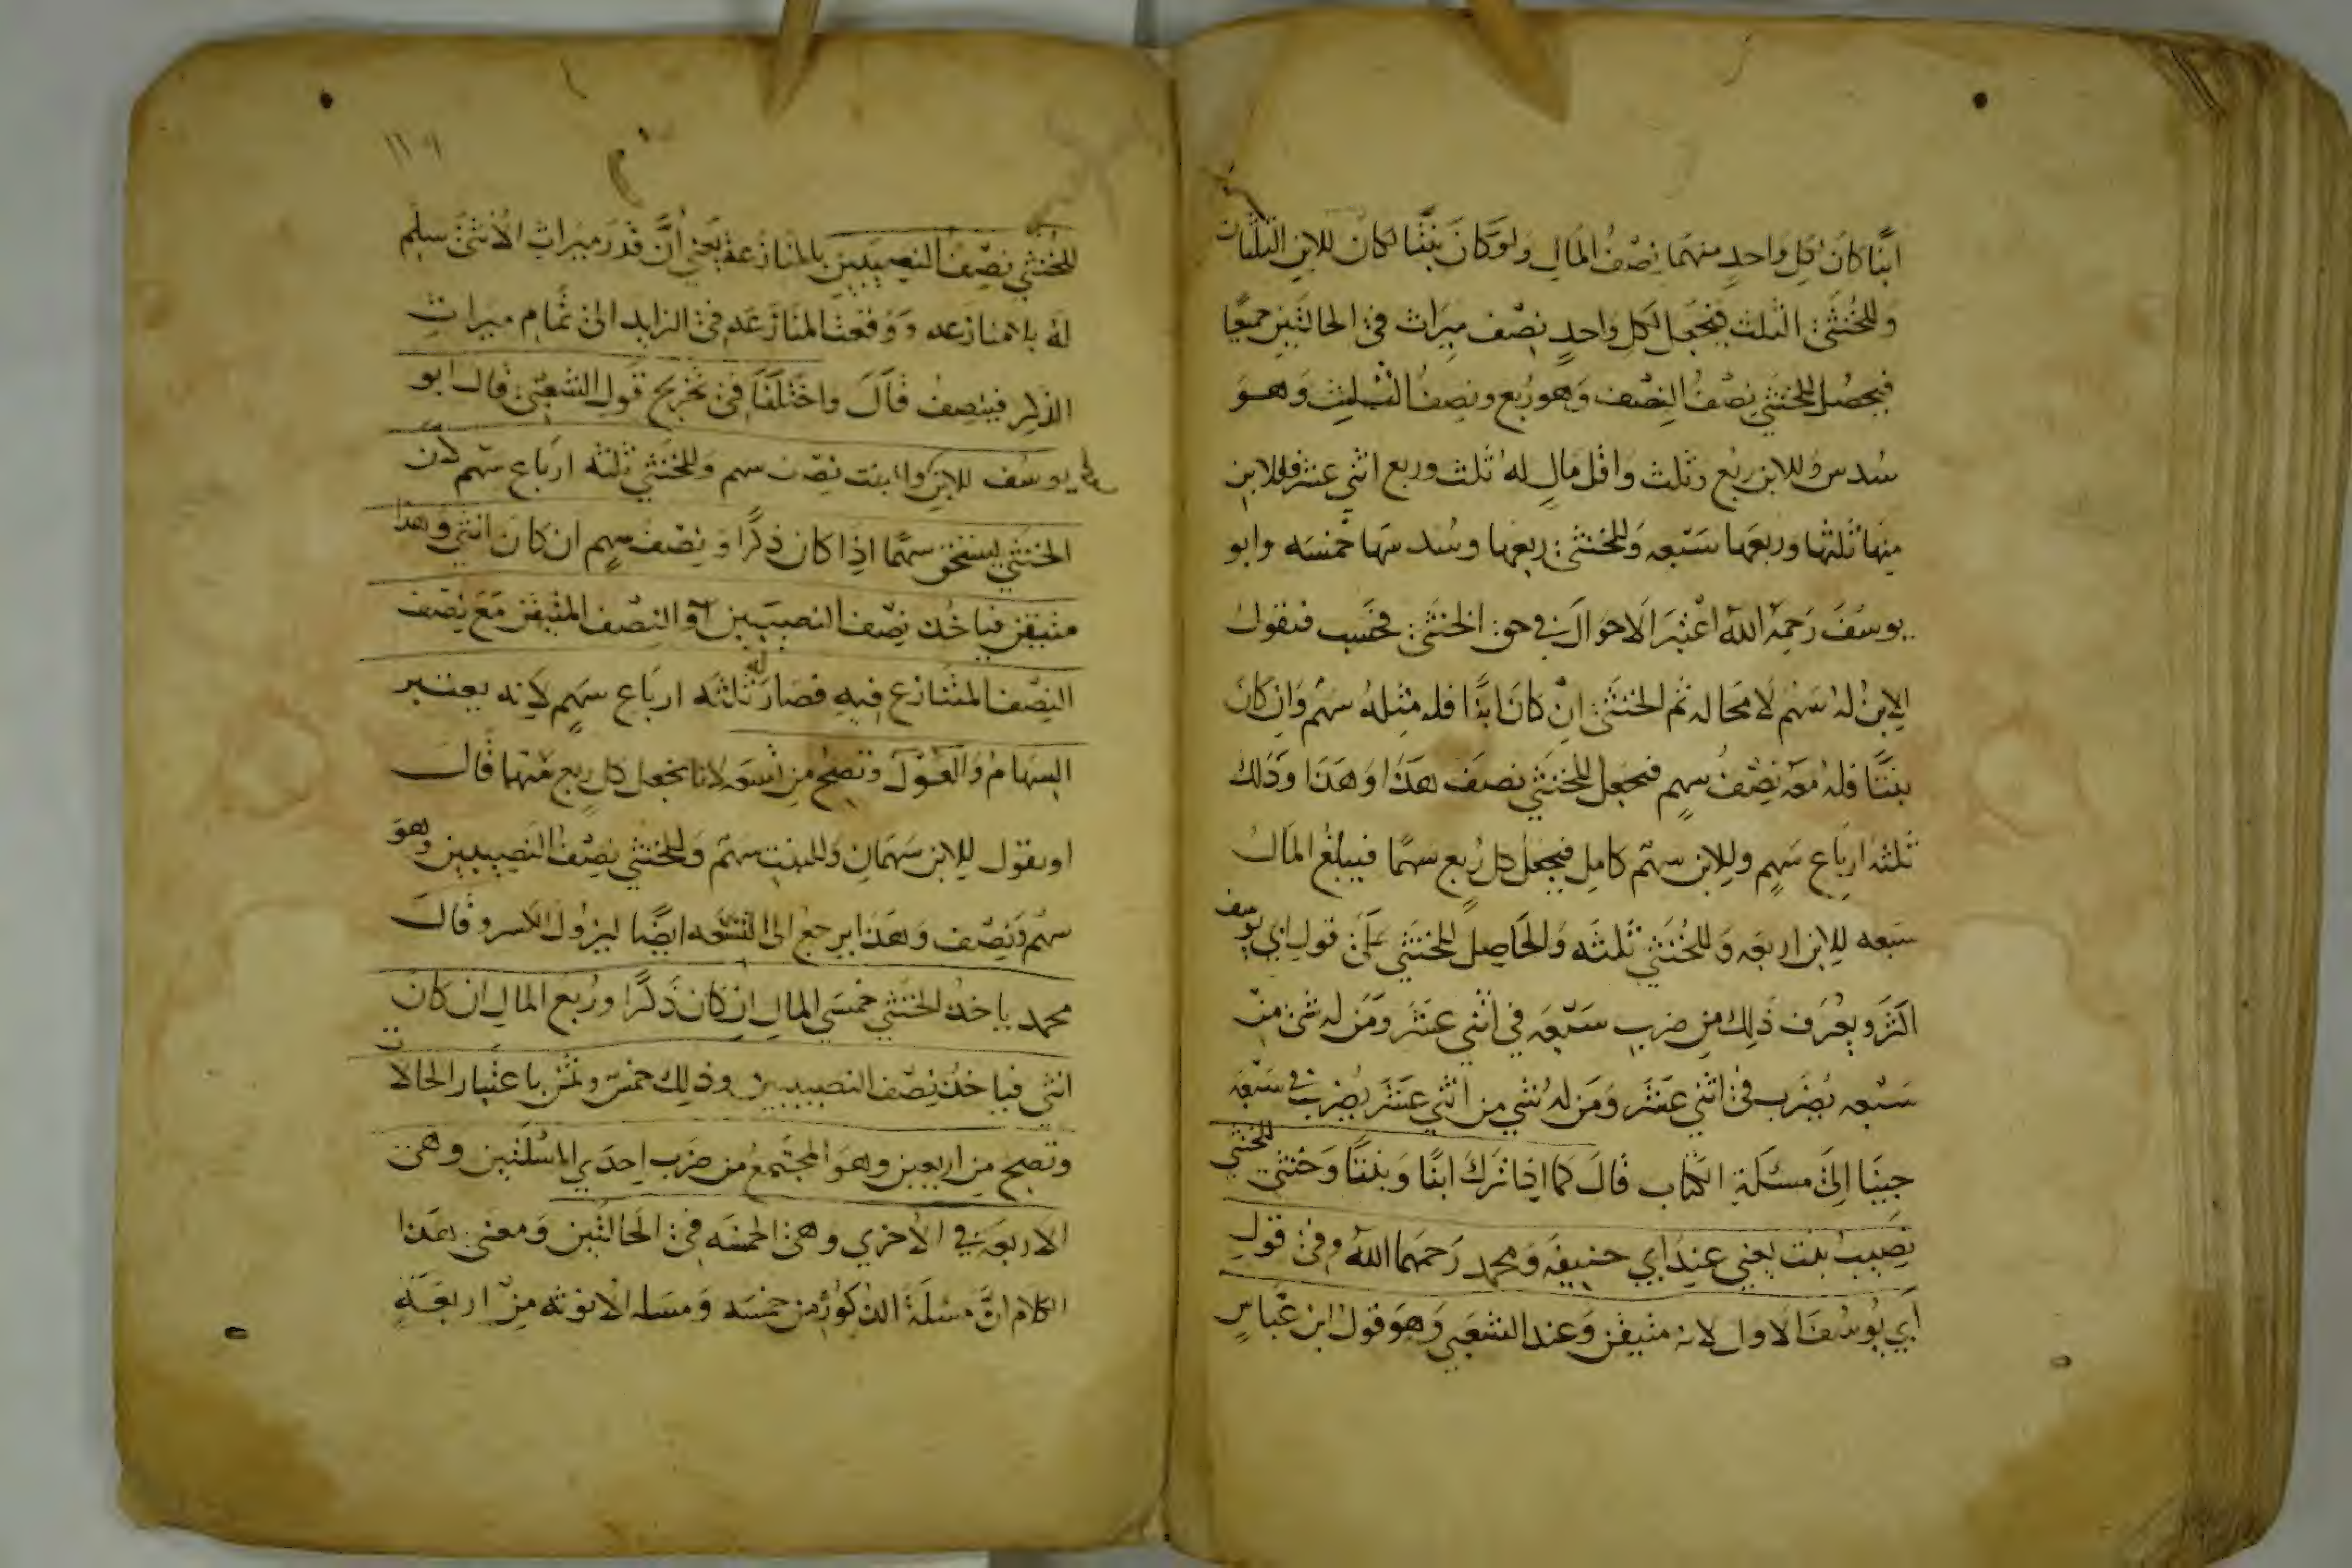 ابنًا كان لكل واحدٍ منهما نصف المال ولو كان بنتًا لكان للابن الثلثان
وللخنثى الثلث فنجعل لكل واحدٍ نصف ميراث في الحالتين جميعًا
فيحصل للخنثي نصف النصف وهو ربع ونصف الثلث وهو
سدس وللابن ربع وثلث واقل مال له ثلث وربع اثني عشر فللابن
منها ثلثها وربعها سبعه وللخنثى ربعها وسدسها خمسه وابو
يوسف رحمه الله اعتبر الاحوال في حق الخنثى فحسب فنقول
الابن له سهم لا محاله ثم الخنثى ان كان ابنًا فله مثله سهم وان كان
بنتًا فله معه نصف سهم فنجعل للخنثي نصف هذا وهذا وذلك
ثلثة ارباع سهم وللابن سهم كامل فنجعل كل ربع سهمًا فيبلغ المال
سبعه للابن اربعه وللخنثي ثلثه والحاصل للخنثي على قول ابي يوسف
اكثر ويعرف ذلك من ضرب سبعه في اثني عشر ومن له شئ من
سبعه يضرب في اثني عشر ومن له شئ من اثني عشر يضرب في سبعه
جينا الى مسئلة الكتاب قال كما اذا ترك ابنًا وبنتًا وخنثى للخنثي
نصيب بنت يعني عند ابي حنيفه ومحمد رحمهما الله وفي قول
ابي يوسف الاول لانه متيقن وعند الشعبي وهو قول ابن عباس
١١٠٩
للخنثي نصف النصيبين بالمنازعة يعني ان قدر ميراث الانثى سلم
له بلا منازعه ووقعت المنازعه في الزايد الى تمام ميراث
الذكر فينصف قال واختلفا في تخريج قول الشعبي قال ابو
يوسف للابن والبنت نصف سهم وللخنثي ثلثه ارباع سهم لان
الخنثي يستحق سهمًا اذا كان ذكرًا ونصف سهم ان كان انثي وهذا
متيقن فياخذ نصف النصيبين او النصف المتيقن مع نصف
النصف المتنازع فيه فصار له ثلثه ارباع سهم لانه يعتبر
السهام والعول وتصح من تسعه لانا نجعل كل ربع منها قال
او نقول للابن سهمان وللبنت سهم وللخنثي نصف النصيبين وهو
سهم ونصف وهذا يرجع الى التسعه ايضًا ليزول الكسر وقال
محمد ياخذ الخنثي خمسي المال ان كان ذكرًا وربع المال ان كان
انثى فياخذ نصف النصيبين وذلك خمس وثمن باعتبار الحالات
وتصح من اربعين وهو المجتمع من ضرب احدي المسلتين وهي
الاربعه في الاخري وهي الخمسه في الحالتين ومعنى هذا
الكلام ان مسئلة الذكورة من خمسه ومسله الانوثه من اربعة